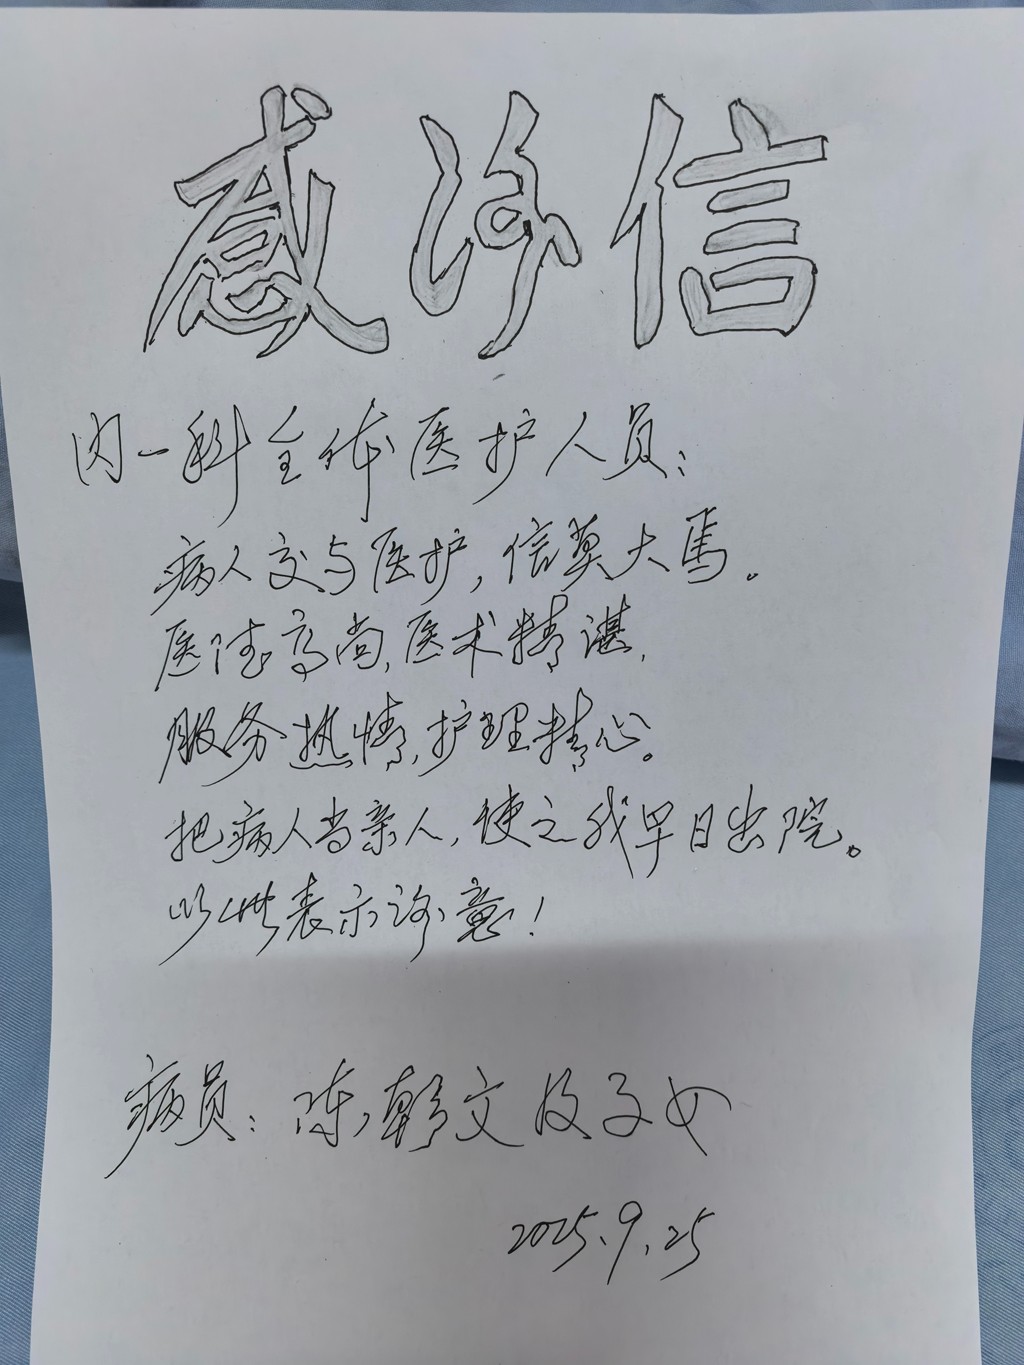 感谢信
内一科全体医护人员：
病人交与医护，信莫大焉。
医德高尚，医术精谌，
服务热情，护理精心。
把病人当亲人，使之我早日出院。
以此表示谢意！
病员：陈朝文及子女
2025.9.25